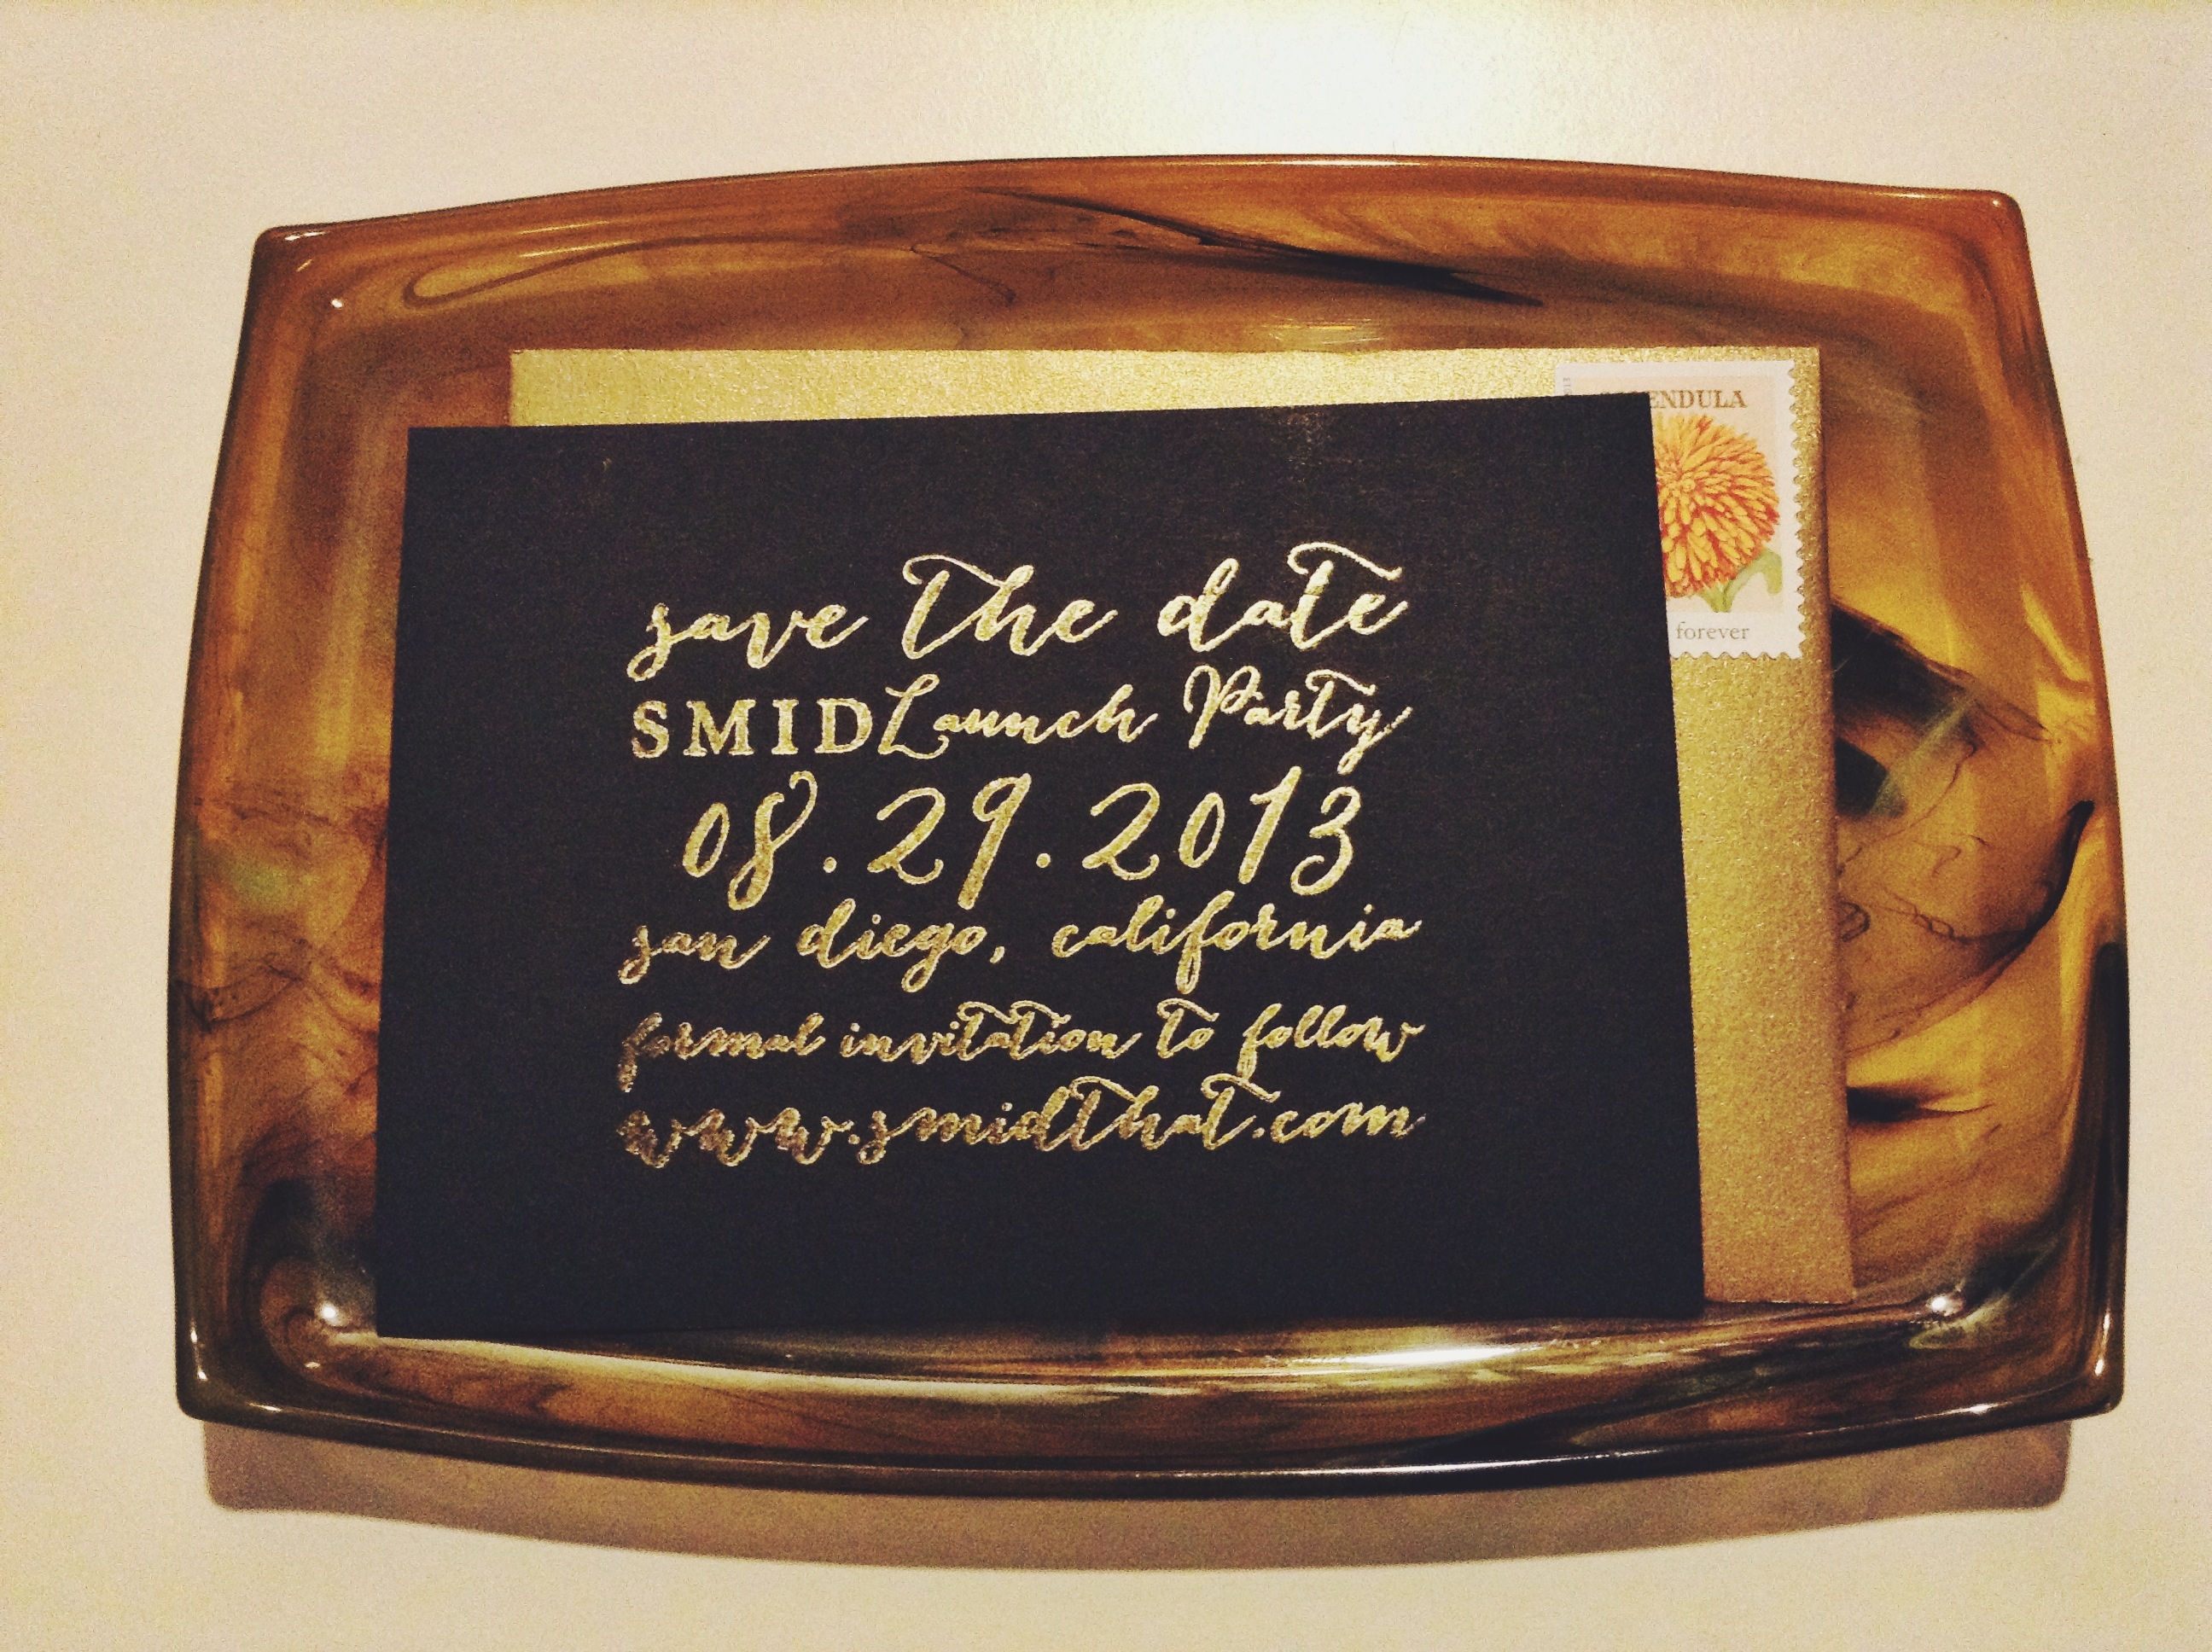 ENDULA
forever
save the date
SMID Launch Party
08.29.2013
san diego, california
formal invitation to follow
www.smidthat.com